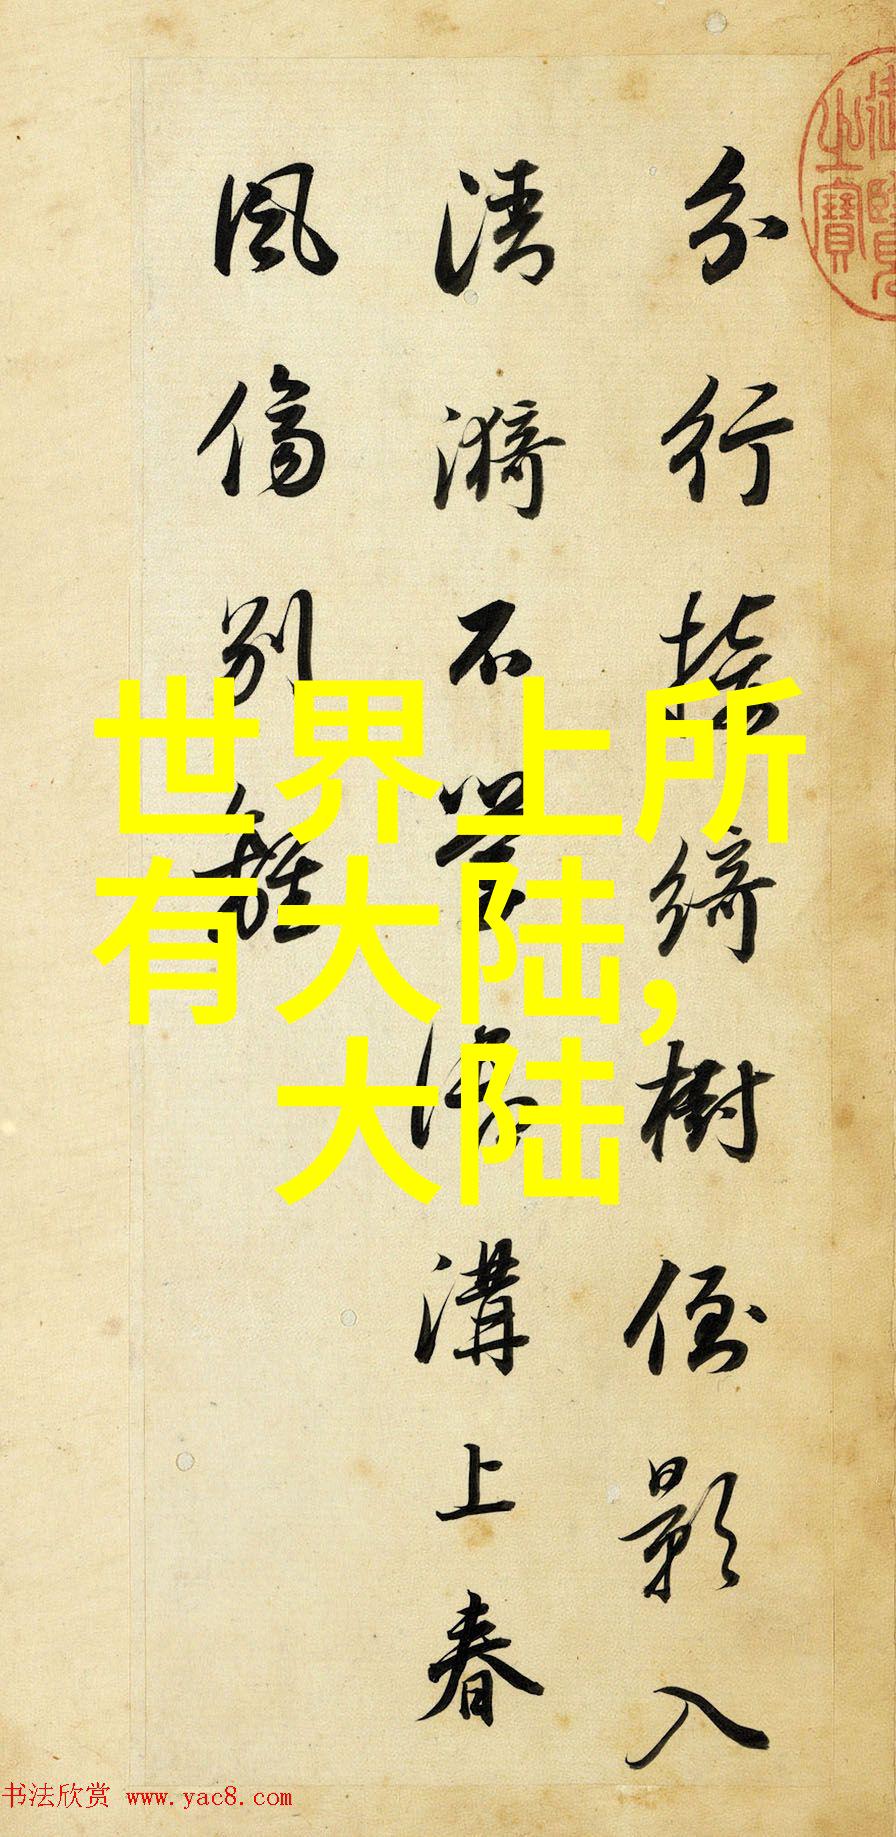 世界上所
有大陆,
大陆
分行接綺樹倒影入
清漪不學御溝上春
風傷別離
之寶
书法欣赏 www.yac8.com